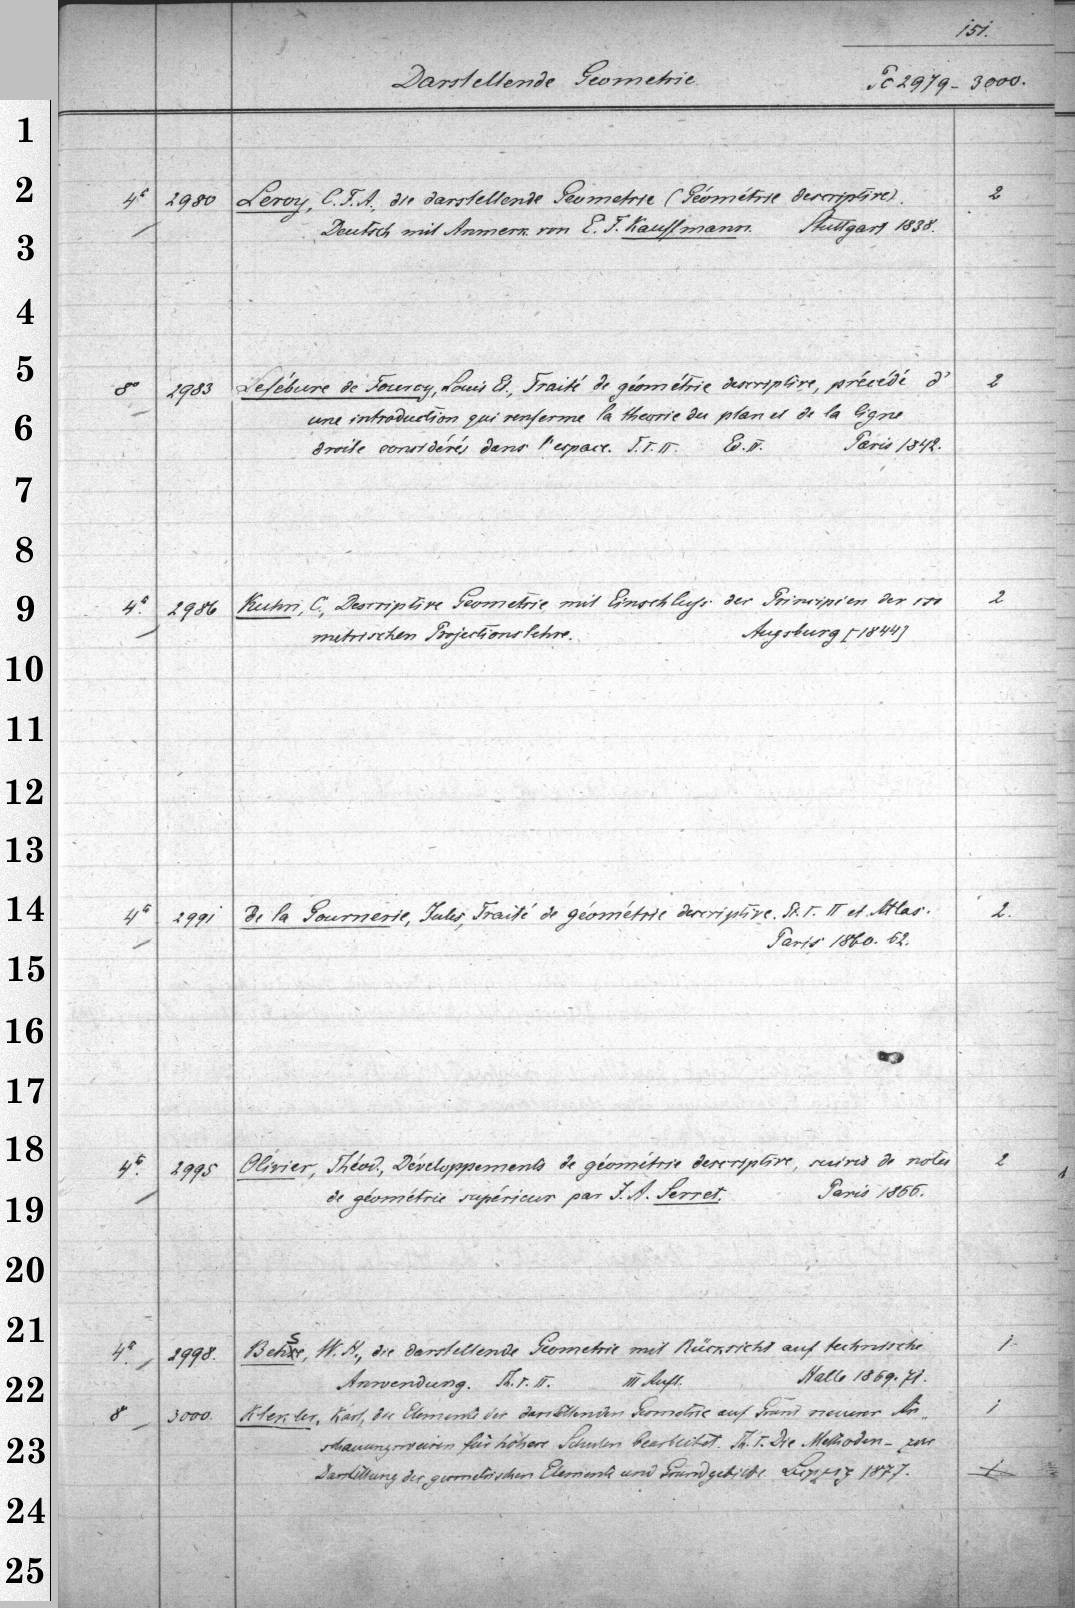 151.
Darstellende Geometrie Pc 2979-3000.
1
2
4° 2980 Leroy, C.F.A., die darstellende Geometrie (Géométrie descriptive). 2
Deutsch mit Anmerk. von E. F. Kauffmann. Stuttgart 1838.
3
4
5
8° 2983 Lefébure de Fourcy, Louis Et., Traité de géométrie descriptive, précédé d' 2
une introduction qui renferme la theorie du plan et de la ligne
6
droite considérés dans l'espace. T.I.II. Ed. II. Paris 1842.
7
8
9
4° 2986 Kuhn, C., Descriptive Geometrie mit Einschluss der Principien der iso 2
metrischen Projectionslehre. Augsburg [1844]
10
11
12
13
14
4° 2991 de la Gournerie, Jules, Traité de géométrie descriptive. Pt. I. II et Atlas. 2.
Paris 1860. 62.
15
16
17
18
4° 2995 Olivier, Théod., Développements de géométrie descriptive, suivis de notes 2
19
de géométrie supérieur par J. A. Serret. Paris 1866.
20
21
4° 2998. Behse, W. H., die darstellende Geometrie mit Rücksicht auf technische 1
22
Anwendung. Th. I. II. III Aufl. Halle 1869. 71.
8 3000. Klekler, Karl, die Elemente der darstellenden Geometrie auf Grund neuerer An- 1
23
schauungsweisen für höhere Schulen bearbeitet. Th. I. Die Methoden zur
Darstellung der geometrischen Elemente und Grundgebilde. Leipzig 1877. 1
24
25